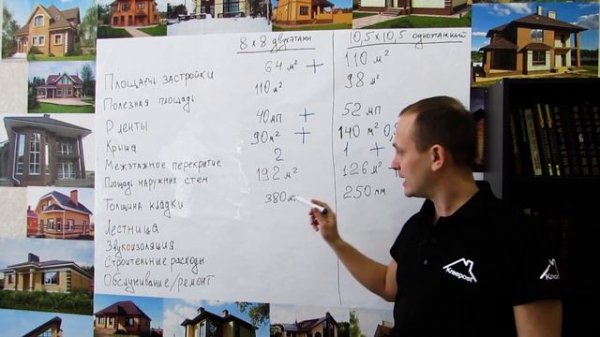 8 x 8 двухэтажн 10,5x10,5 одноэтажный
Площадь застройки 64 м² + 110 м²
Полезная площадь 110 м² 98 м²
D ленты 40 мп + 52 мп
Крыша 90 м² + 140 м²
Межэтажное перекрытие 2 1 +
Площадь наружных стен 192 м² 126 м²
Толщина кладки 380 250 мм
Лестница
Звукоизоляция
Строительные расходы
Обслуживание/ремонт